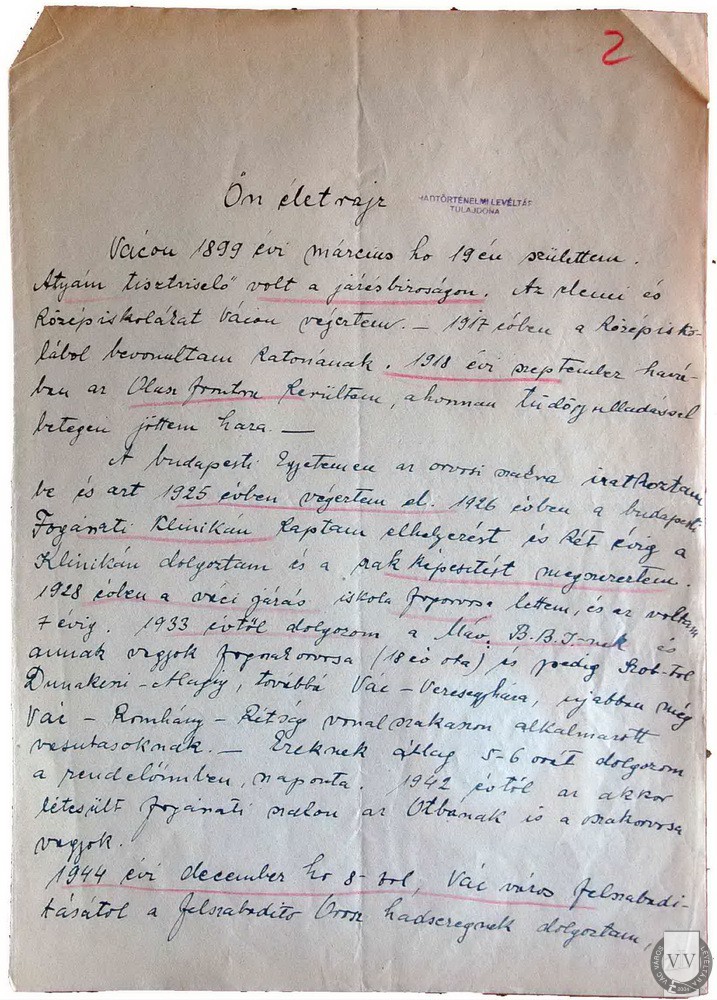 2
Ön életrajz
HADTÖRTÉNELMI LEVÉLTÁR
TULAJDONA
Vácon 1899 évi március hó 19én születtem.
Atyám tisztviselő volt a járásbiróságon. Az elemi és
középiskolákat Vácon végeztem. — 1917 évben a középisko-
lából bevonultam katonának. 1918 évi szeptember havá-
ban az Olasz frontra kerültem, ahonnan tüdőgyulladással
betegen jöttem haza. —
A budapesti Egyetemen az orvosi szakra iratkoztam
be és azt 1925 évben végeztem el. 1926 évben a budapesti
Fogászati Klinikán kaptam elhelyezést és két évig a
Klinikán dolgoztam és a szakképesitést megszereztem.
1928 évben a váci járás iskola fogorvosa lettem, és az voltam
7 évig. 1933 évtől dolgozom a Máv. B.B.I-nek és
annak vagyok fogszakorvosa (18 év óta) és pedig Szob-tól
Dunakeszi-Alagig, továbbá Vác-Veresegyháza, újabban még
Vác - Romhány - Rétság vonalszakaszon alkalmazott
vasutasoknak. — Ezeknek átlag 5-6 órát dolgozom
a rendelőmben, naponta. 1942 évtől az akkor
létesült fogászati szakon az Otbának is a szakorvosa
vagyok.
1944 évi december hó 8-tól, Vác város felszabadi-
tásától a felszabadító Orosz hadseregnek dolgoztam,
VÁC VÁROS LEVÉLTÁRA
VV